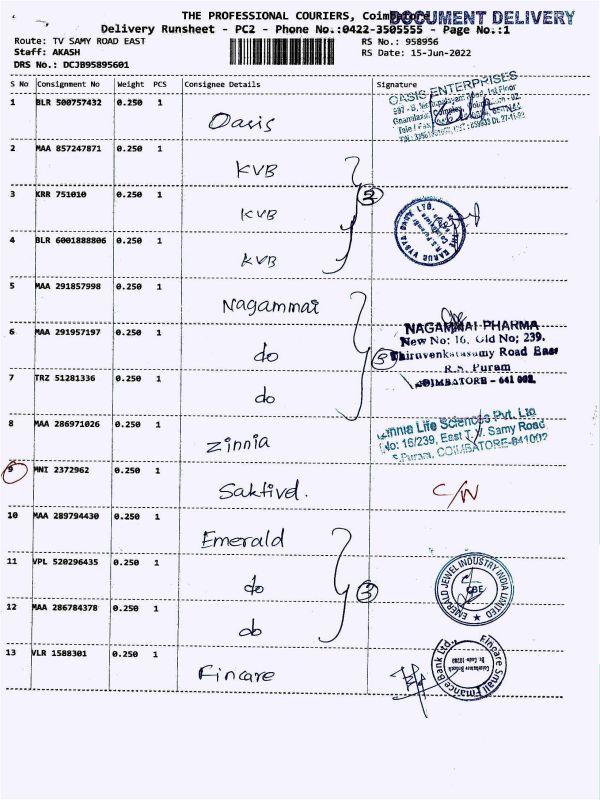 THE PROFESSIONAL COURIERS, Coimbatore
DOCUMENT DELIVERY
Delivery Runsheet - PC2 - Phone No.:0422-3505555 - Page No.:1
Route: TV SAMY ROAD EAST
RS No.: 958956
Staff: AKASH
RS Date: 15-Jun-2022
DRS No.: DCJB95895601
S No Consignment No Weight PCS Consignee Details Signature
1 BLR 500757432 0.250 1 Oasis
OASIS ENTERPRISES
2 MAA 857247871 0.250 1 KVB
3 KRR 751010 0.250 1 KVB
3
THE KARUR VYSYA BANK LTD.
4 BLR 6001888806 0.250 1 KVB
5 MAA 291857998 0.250 1 Nagammai
6 MAA 291957197 0.250 1 do
3
NAGAMMAI PHARMA
New No: 16, Old No; 239.
Thiruvenkatasamy Road East
R.S. Puram
COIMBATORE - 641 002.
7 TRZ 51281336 0.250 1 do
8 MAA 286971026 0.250 1 Zinnia
Zinnia Life Sciences Pvt. Ltd
No: 16/239, East T.V. Samy Road
R.S.Puram, COIMBATORE-641002
9 MNI 2372962 0.250 1 Saktivel.
C/N
10 MAA 289794430 0.250 1 Emerald
11 VPL 520296435 0.250 1 do
3
EMERALD JEWEL INDUSTRY INDIA LIMITED
CBE
12 MAA 286784378 0.250 1 do
13 VLR 1588301 0.250 1 Fincare
Fincare Small Finance Bank Ltd.,
Coimbatore Branch